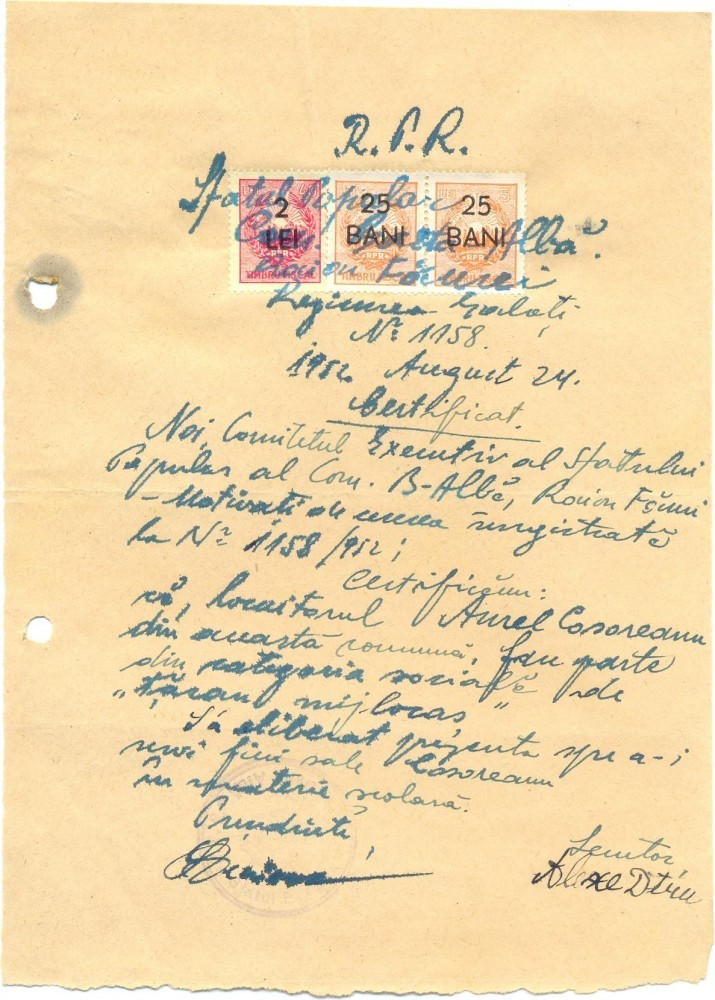 R.P.R.
Sfatul Popular
Com. Balta Albă
Raion Făurei
Regiunea Galați
Nº 1158.
1952 August 24.
Certificat.
Noi, Comitetul Executiv al Sfatului
Popular al Com. B-Albă, Raion Făurei
- Motivați de cererea înregistrată
la Nº 1158/952;
Certificăm:
că, locuitorul Aurel Cosoreanu
din această comună, face parte
din categoria socială de
"țăran mijlocaș"
S'a eliberat prezenta spre a-i
servi fiicei sale Cosoreanu
în materie școlară.
Președinte,
Secretar
Alexe D-tru
2
LEI
RPR
25
BANI
RPR
25
BANI
RPR